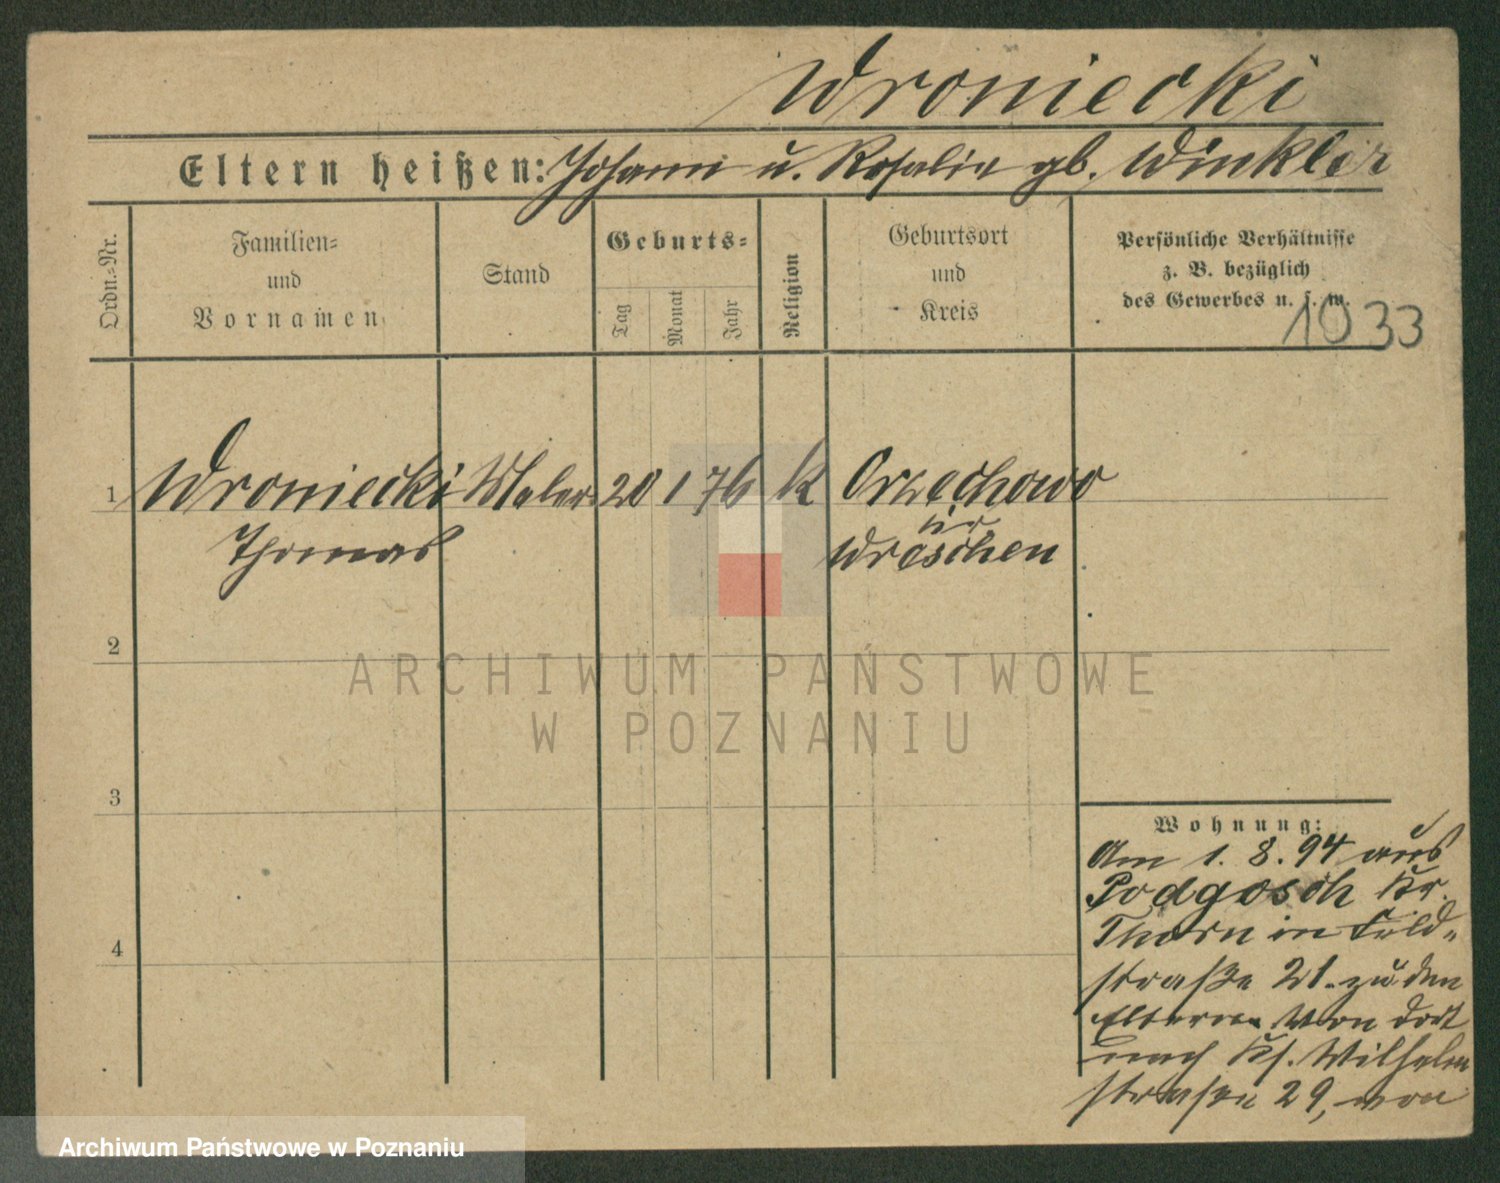 Wroniecki
Eltern heißen: Johann u. Rosalie gb. Winkler
Ordn.-Nr.
Familien-
und
Vornamen
Stand
Geburts-
Tag
Monat
Jahr
Religion
Geburtsort
und
Kreis
Persönliche Verhältnisse
z. B. bezüglich
des Gewerbes u. s. w.
1033
1 Wroniecki Maler 20 1 76 k Orzechowo
Thomas
Kr
Wreschen
2
3
4
ARCHIWUM PAŃSTWOWE
W POZNANIU
Wohnung:
Am 1. 8. 94 aus
Podgosch Kr.
Thorn in Feld-
straße 21. zu den
Eltern Von dort
nach Kl. Wilhelm
straße 29, von
Archiwum Państwowe w Poznaniu